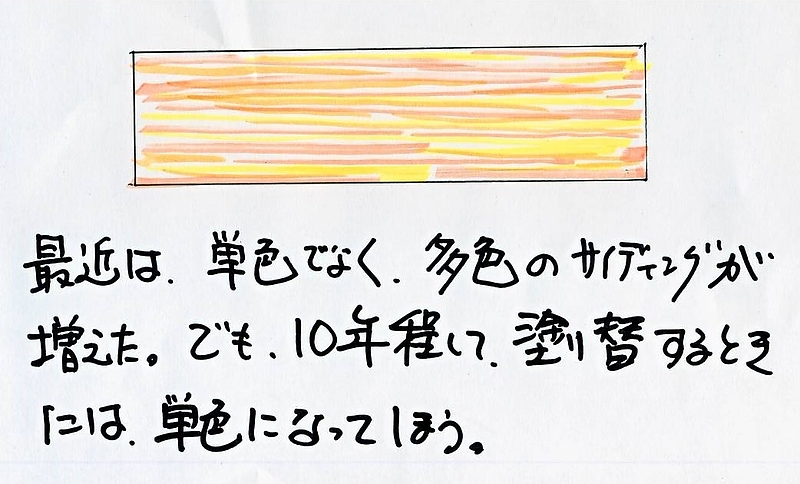 最近は、単色でなく、多色のサイディングが
増えた。でも、10年程して、塗り替するとき
には、単色になってしまう。